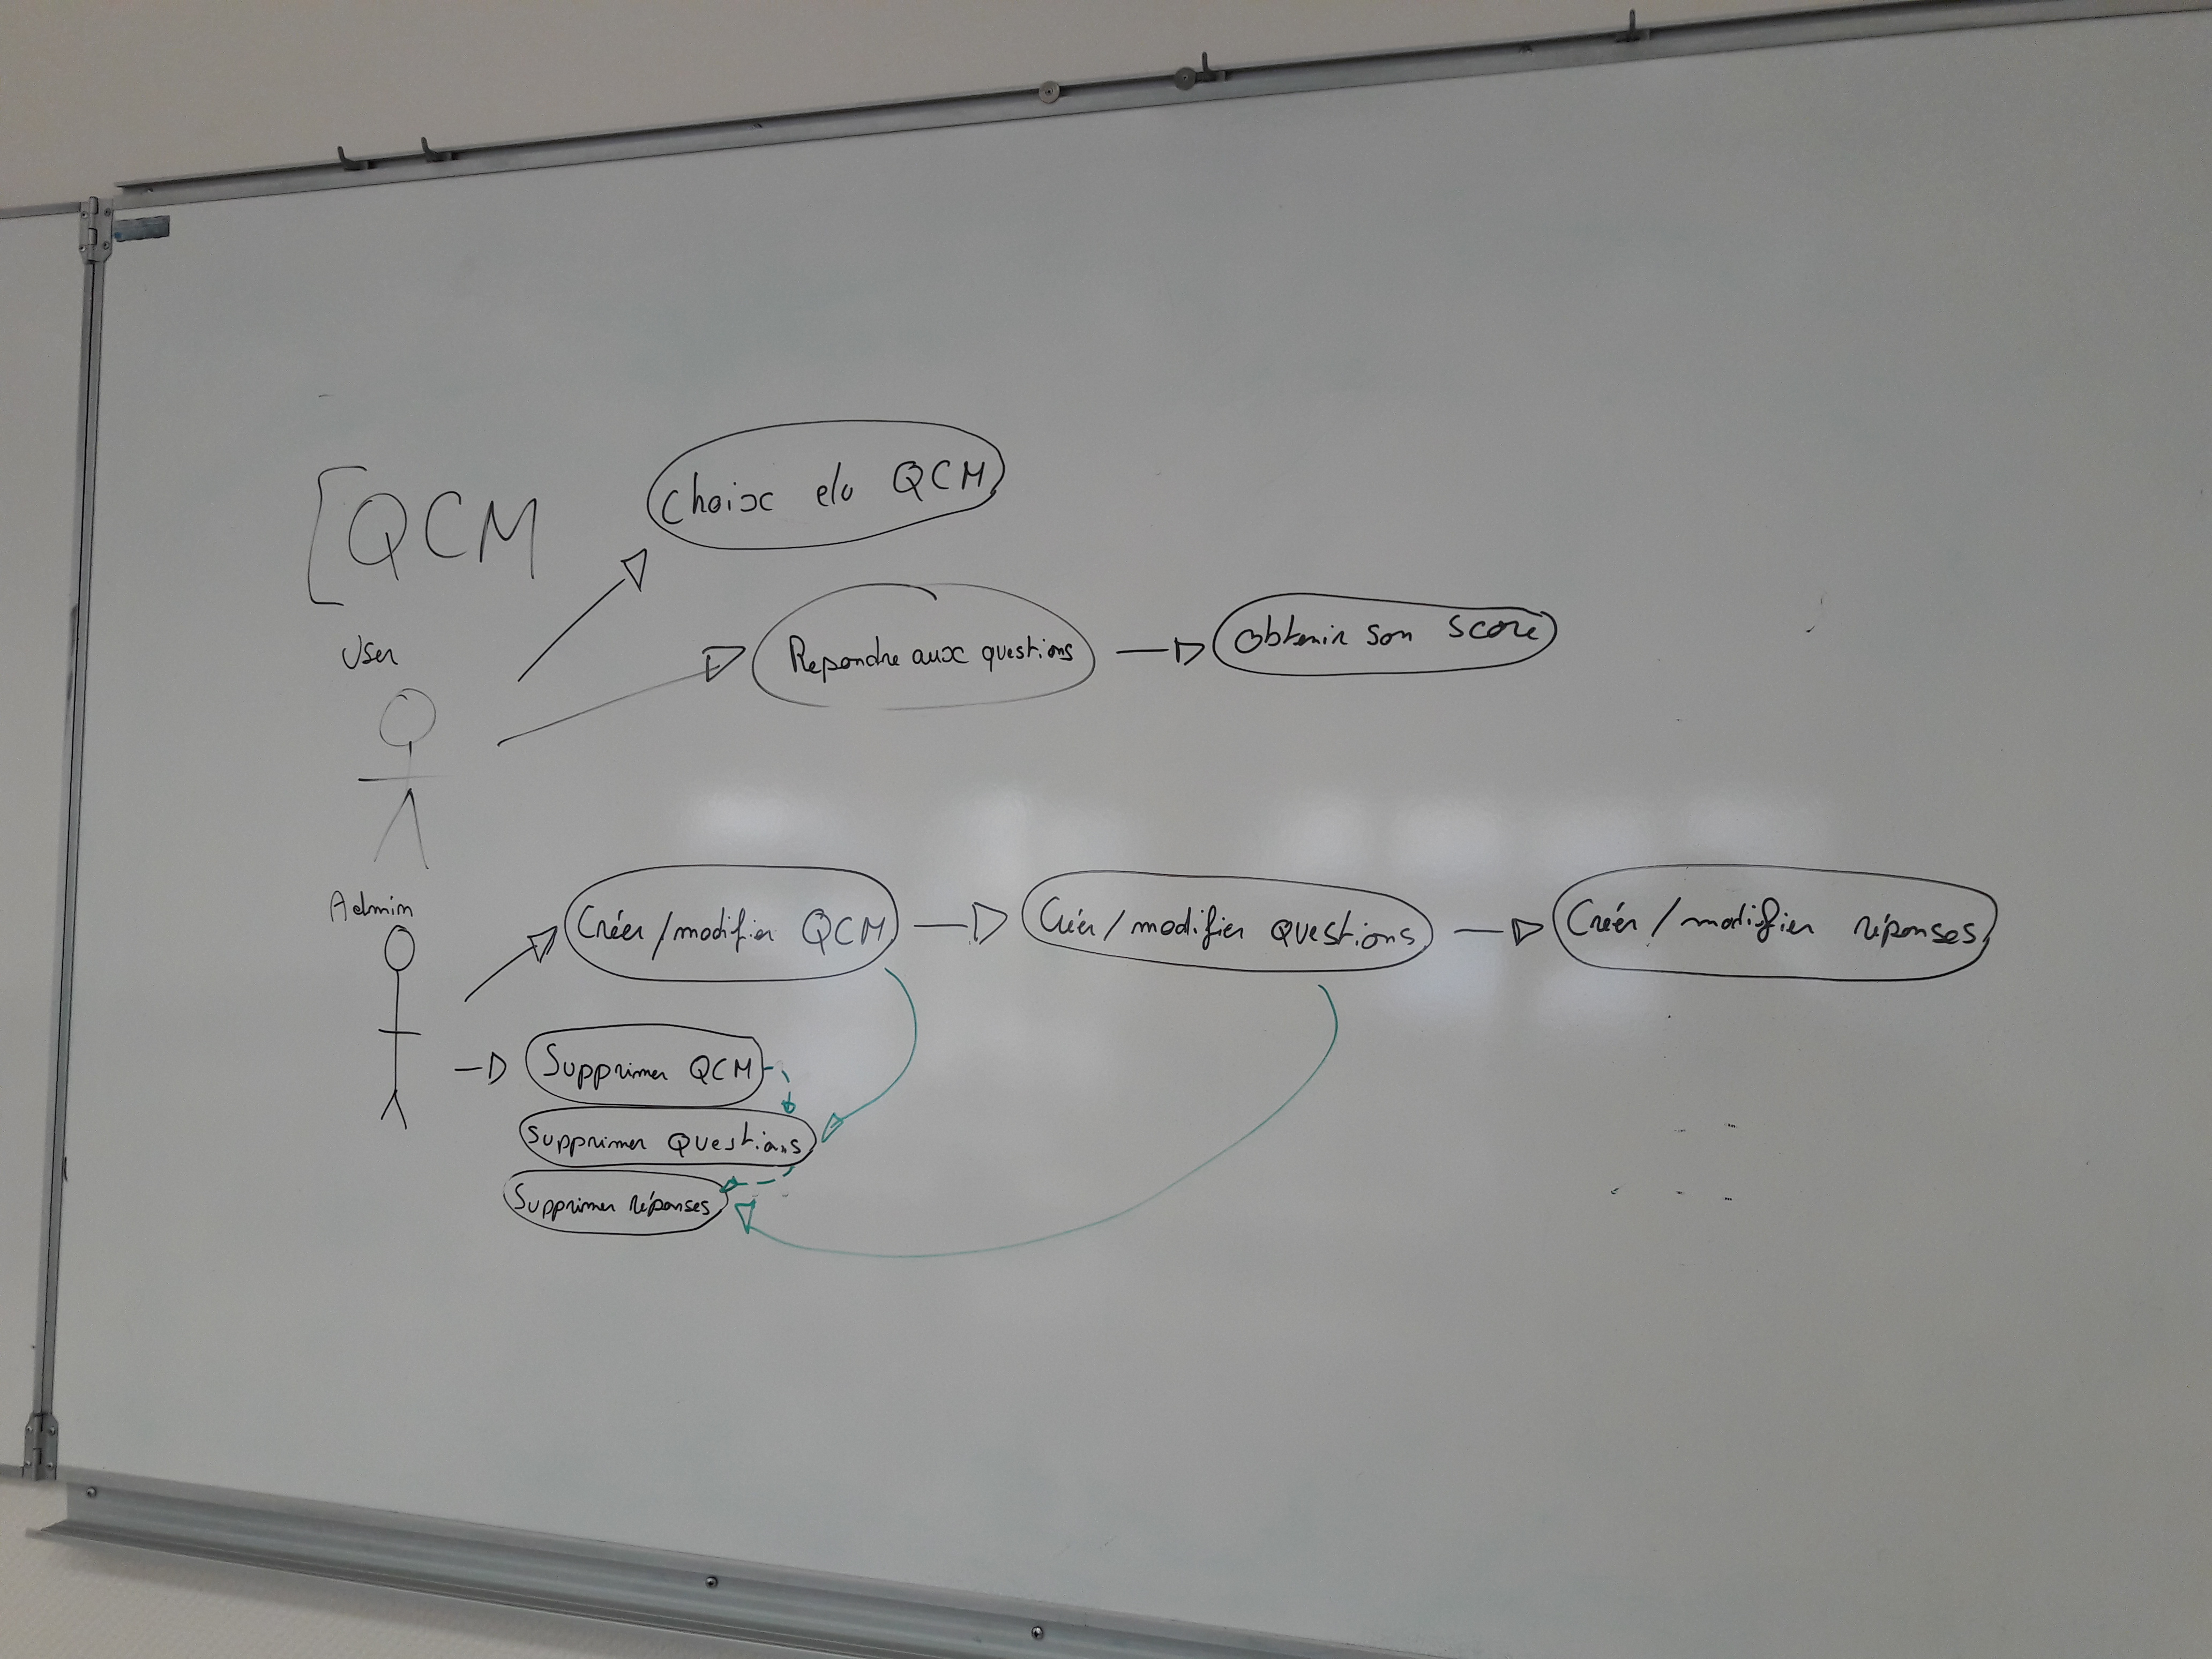 [QCM
Choix du QCM
User
Repondre aux questions
Obtenir son score
Admin
Créer/modifier QCM
Créer/modifier questions
Créer/modifier réponses
Supprimer QCM
Supprimer Questions
Supprimer réponses